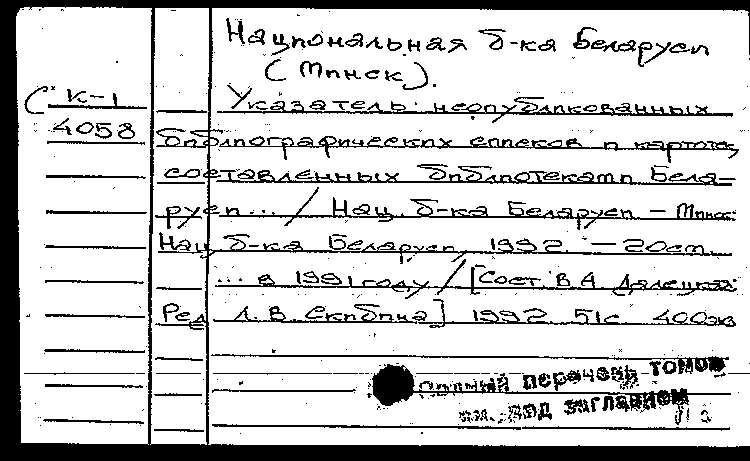 Национальная б-ка Беларуси
(Минск).
К-1
4058
Указатель неопубликованных
библиографических списков и картотек,
составленных библиотеками Бела-
руси... / Нац. б-ка Беларуси – Минск:
Нац. б-ка Беларуси, 1992. – 20см.
... в 1991 году / [Сост. В.А. Далецкая
Ред. Л.В. Скибина] 1992. 51с. 400экз
Полный перечень томов
см. под заглавием